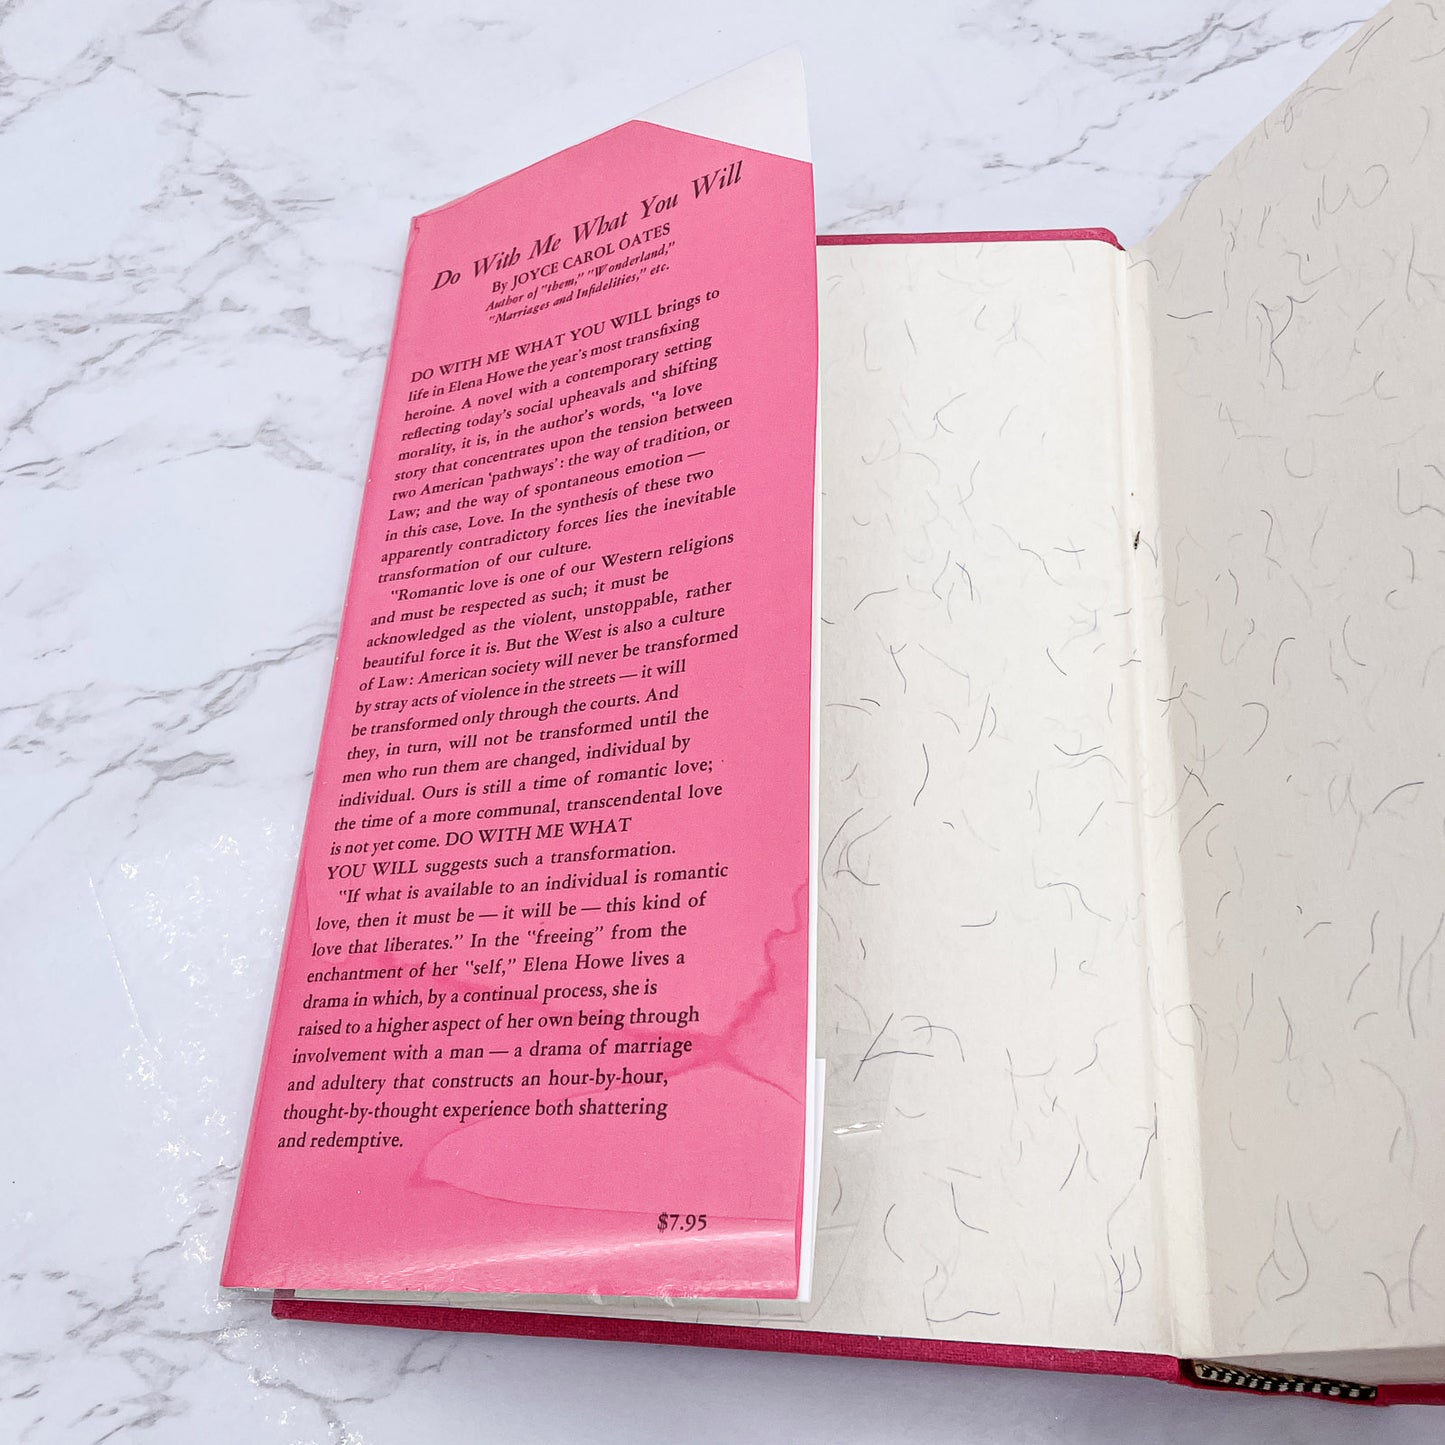 Do With Me What You Will
By JOYCE CAROL OATES
Author of "them," "Wonderland,"
"Marriages and Infidelities," etc.
DO WITH ME WHAT YOU WILL brings to
life in Elena Howe the year's most transfixing
heroine. A novel with a contemporary setting
reflecting today's social upheavals and shifting
morality, it is, in the author's words, "a love
story that concentrates upon the tension between
two American 'pathways': the way of tradition, or
Law; and the way of spontaneous emotion —
in this case, Love. In the synthesis of these two
apparently contradictory forces lies the inevitable
transformation of our culture.
"Romantic love is one of our Western religions
and must be respected as such; it must be
acknowledged as the violent, unstoppable, rather
beautiful force it is. But the West is also a culture
of Law: American society will never be transformed
by stray acts of violence in the streets — it will
be transformed only through the courts. And
they, in turn, will not be transformed until the
men who run them are changed, individual by
individual. Ours is still a time of romantic love;
the time of a more communal, transcendental love
is not yet come. DO WITH ME WHAT
YOU WILL suggests such a transformation.
"If what is available to an individual is romantic
love, then it must be — it will be — this kind of
love that liberates." In the "freeing" from the
enchantment of her "self," Elena Howe lives a
drama in which, by a continual process, she is
raised to a higher aspect of her own being through
involvement with a man — a drama of marriage
and adultery that constructs an hour-by-hour,
thought-by-thought experience both shattering
and redemptive.
$7.95